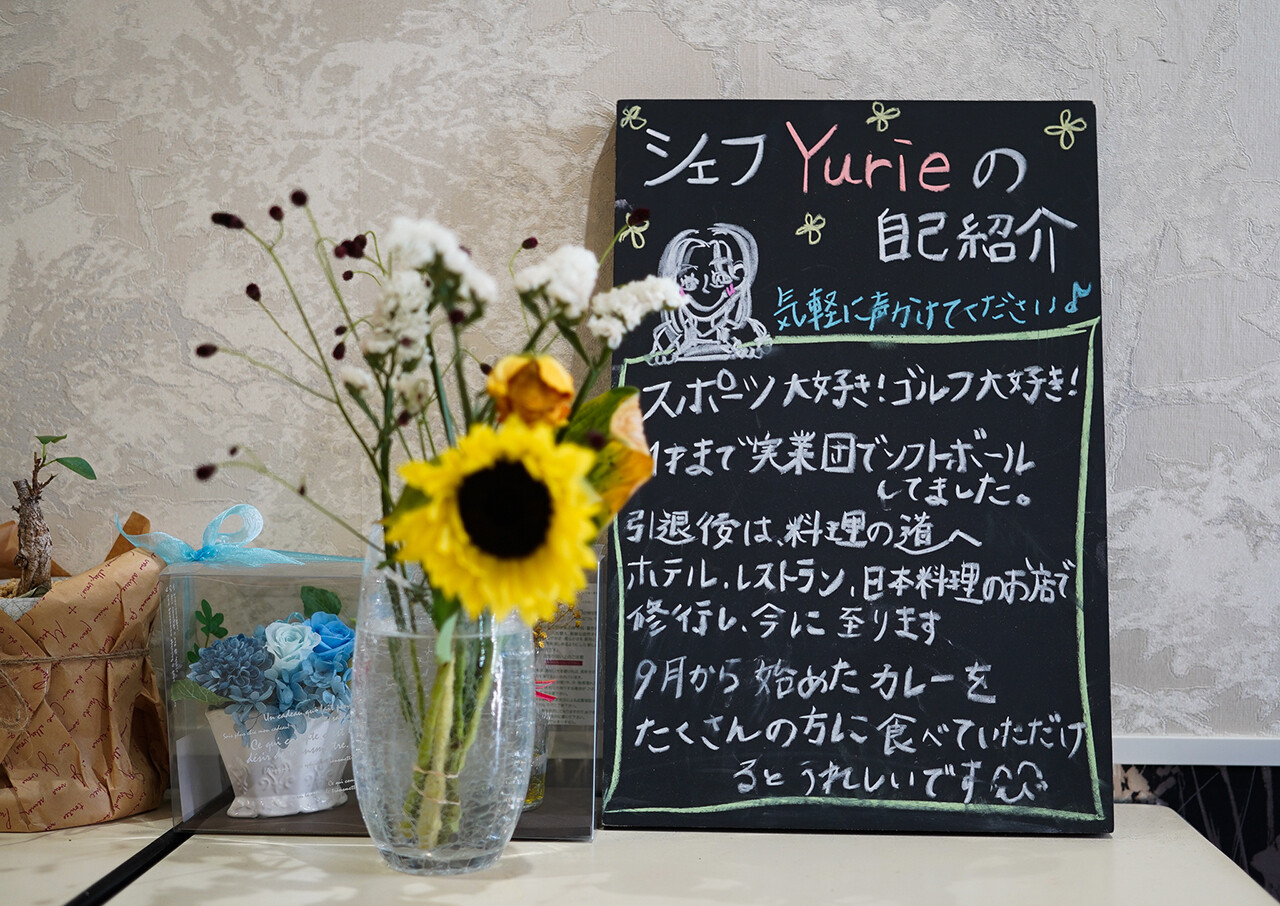 シェフ Yurieの
自己紹介
気軽に声かけてください♪
スポーツ大好き!ゴルフ大好き!
1才まで実業団でソフトボール
してました。
引退後は、料理の道へ
ホテル、レストラン、日本料理のお店で
修行し、今に至ります
9月から始めたカレーを
たくさんの方に食べていただけ
るとうれしいです
Un cadeau
Ce qui